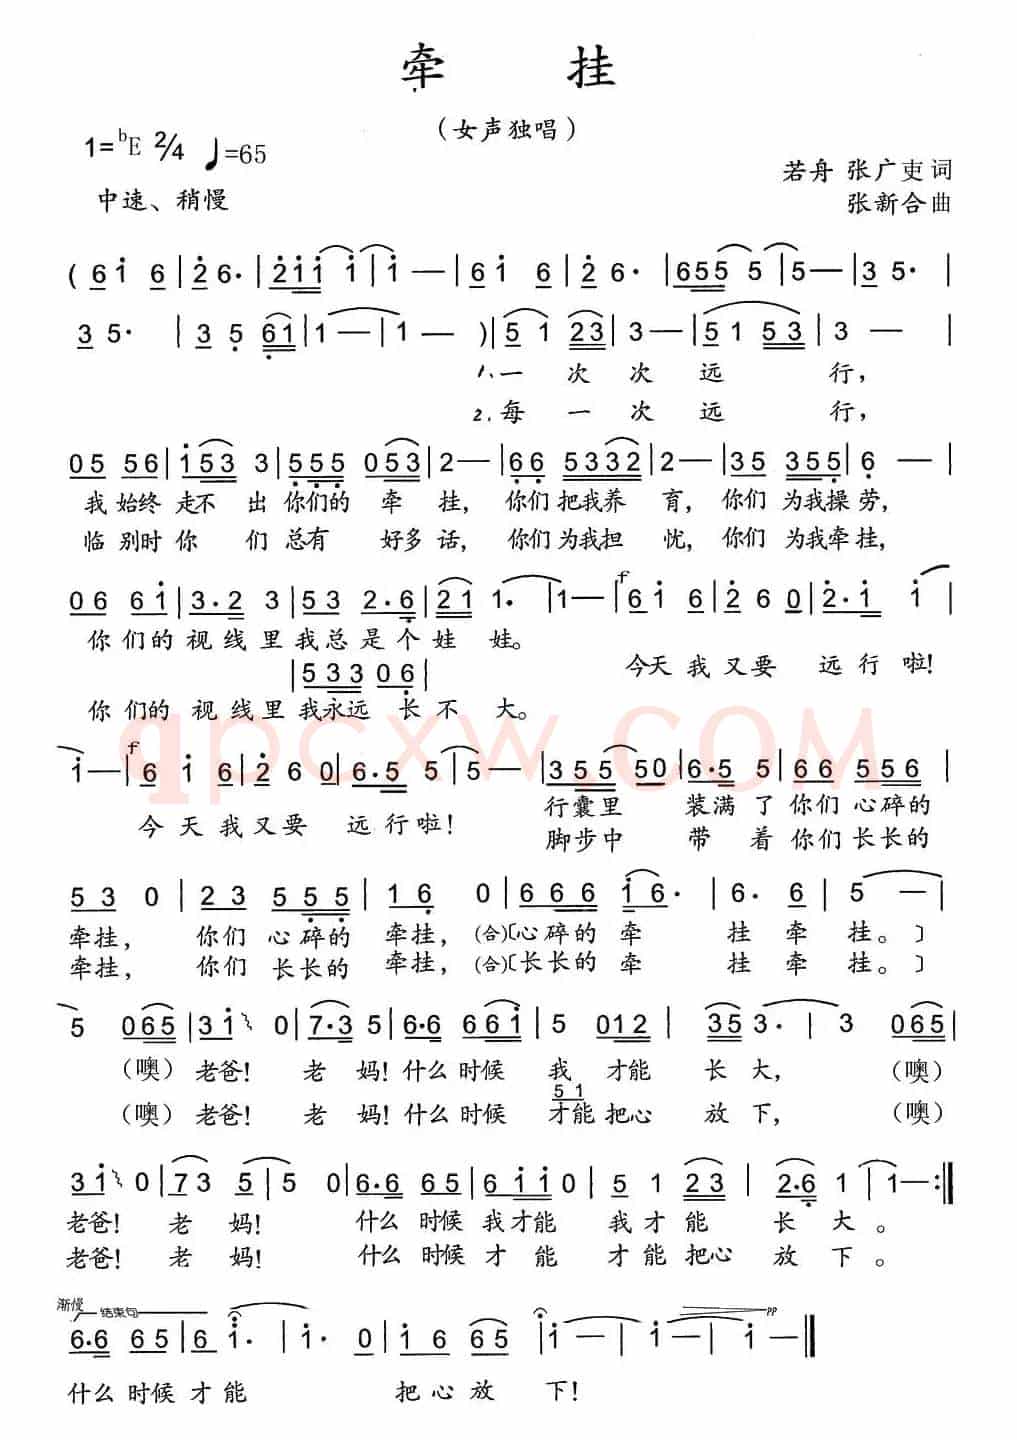 牵 挂
（女声独唱）
1=ᵇE 2/4 ♩=65
中速、稍慢
若舟 张广吏词
张新合曲
( 6 i 6 | 2 6· | 2 i i i | i — | 6 i 6 | 2 6· | 6 5 5 5 | 5 — | 3 5· |
3 5· | 3 5 6 1 | 1 — | 1 — ) | 5 1 2 3 | 3 — | 5 1 5 3 | 3 — |
1、一 次 次 远 行，
2、每 一 次 远 行，
0 5 5 6 | i 5 3 3 | 5 5 5 0 5 3 | 2 — | 6 6 5 3 3 2 | 2 — | 3 5 3 5 5 | 6 — |
我 始终 走不 出 你们的 牵 挂， 你们把我养 育，你们 为我操 劳，
临 别时 你 们 总有 好多 话， 你们为我担 忧，你们 为我牵挂，
0 6 6 i | 3·2 3 | 5 3 2·6 | 2 1 1· | 1 — | f 6 i 6 | 2 6 0 | 2·i i |
你们的 视线里 我总是个娃 娃。
今天我又要 远行啦！
| 5 3 3 0 6 |
你们的 视线里 我永远 长不 大。
qpcxw.COM
i — | f 6 i 6 | 2 6 0 | 6·5 5 | 5 — | 3 5 5 5 0 | 6·5 5 | 6 6 5 5 6 |
行囊里 装满了你们 心碎的
今天我又要 远行啦！
脚步中 带 着你们长长的
5 3 0 | 2 3 5 5 5 | 1 6 0 | 6 6 6 i 6· | 6· 6 | 5 — |
牵挂， 你们 心碎的 牵挂，(合)〔心碎的牵 挂牵挂。〕
牵挂， 你们 长长的 牵挂，(合)〔长长的牵 挂牵挂。〕
5 0 6 5 | 3 i 0 | 7·3 5 | 6·6 6 6 i | 5 0 1 2 | 3 5 3· | 3 0 6 5 |
（噢）老爸！ 老 妈！什么时候 我 才能 长大，（噢）
5 1
（噢）老爸！ 老 妈！什么时候 才能把心 放下，（噢）
3 i 0 | 7 3 5 | 5 0 | 6·6 6 5 | 6 i i 0 | 5 1 2 3 | 2·6 1 | 1 — :‖
老爸！ 老 妈！ 什么 时候我才能 我才能 长 大。
老爸！ 老 妈！ 什么 时候才 能 才能把心 放 下。
渐慢 结束句 pp
6·6 6 5 | 6 i· | i· 0 | i 6 6 5 | i — | i — | i — ‖
什么时候才能 把心放 下！